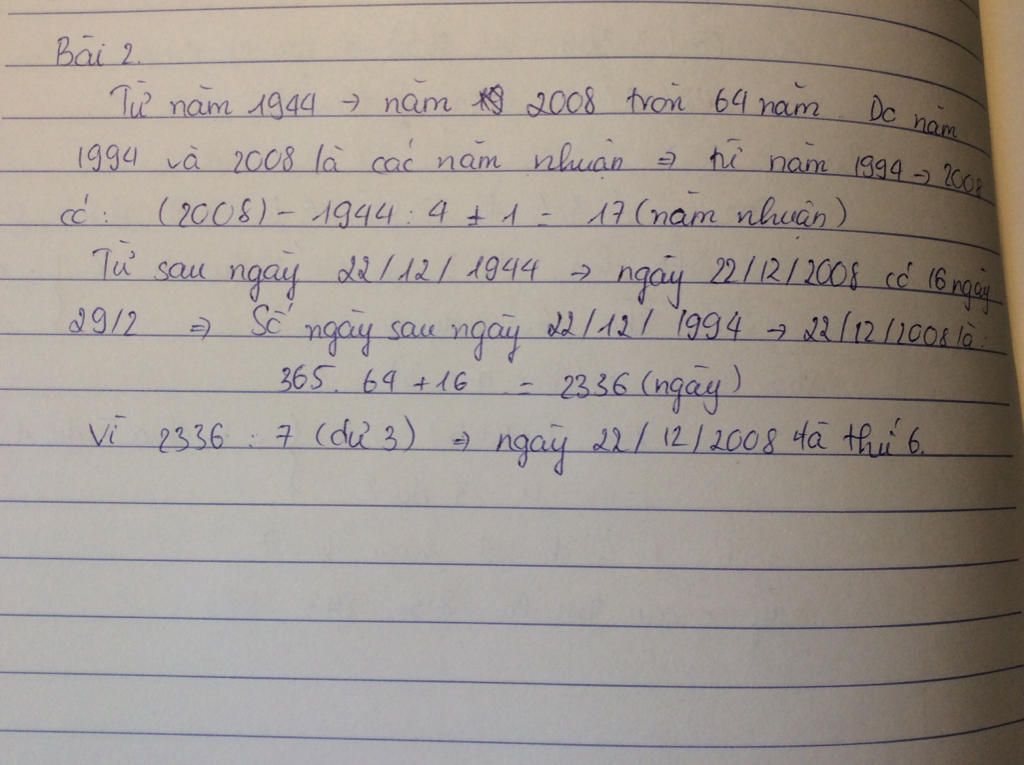 Bài 2.
Từ năm 1944 → năm 2008 tròn 64 năm. Do năm
1994 và 2008 là các năm nhuận ⇒ từ năm 1994 → 2008
có: (2008) - 1944 : 4 + 1 = 17 (năm nhuận)
Từ sau ngày 22/12/1944 → ngày 22/12/2008 có 16 ngày
29/2 ⇒ Số ngày sau ngày 22/12/1994 → 22/12/2008 là:
365. 64 + 16 = 2336 (ngày)
Vì 2336 : 7 (dư 3) ⇒ ngày 22/12/2008 là thứ 6.